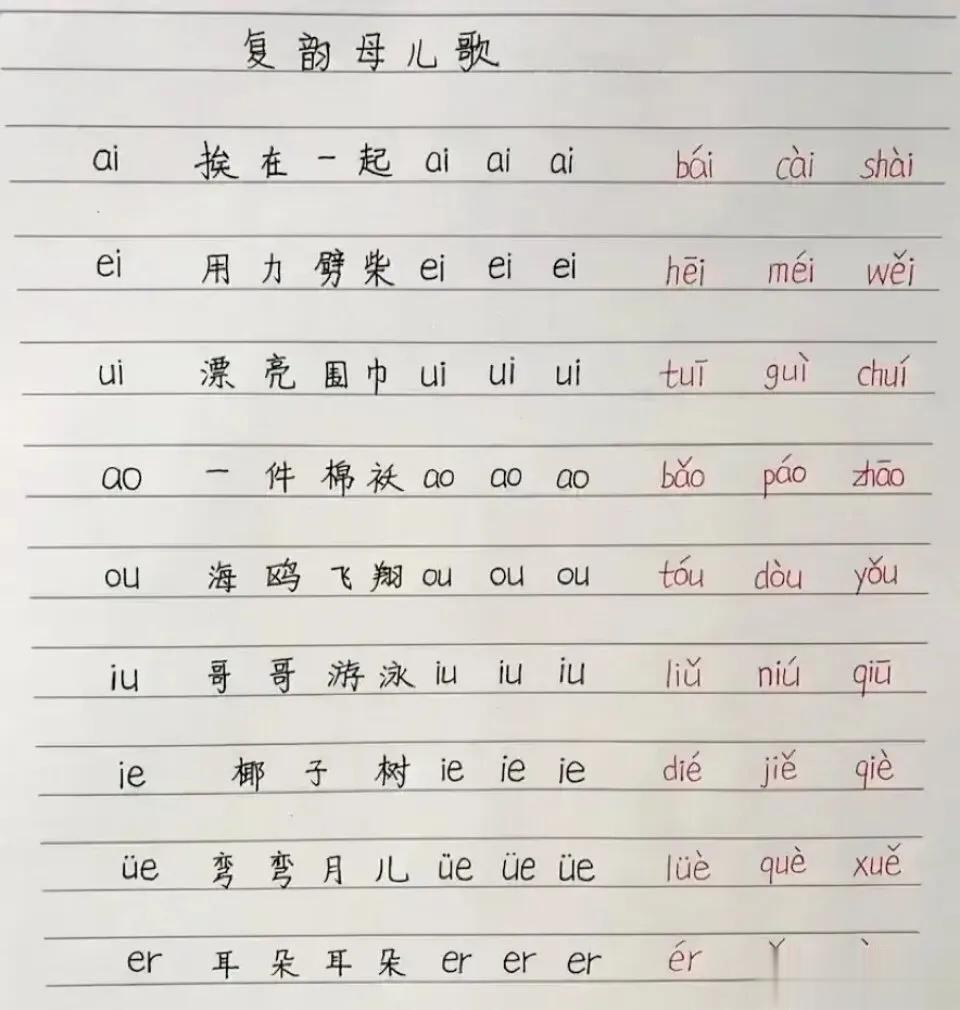 复韵母儿歌
ai 挨在一起 ai ai ai bái cài shài
ei 用力劈柴 ei ei ei hēi méi wěi
ui 漂亮围巾 ui ui ui tuī guì chuí
ao 一件棉袄 ao ao ao bǎo páo zhāo
ou 海鸥飞翔 ou ou ou tóu dòu yǒu
iu 哥哥游泳 iu iu iu liǔ niú qiū
ie 椰子树 ie ie ie dié jiě qiè
üe 弯弯月儿 üe üe üe lüè què xuě
er 耳朵耳朵 er er er ér